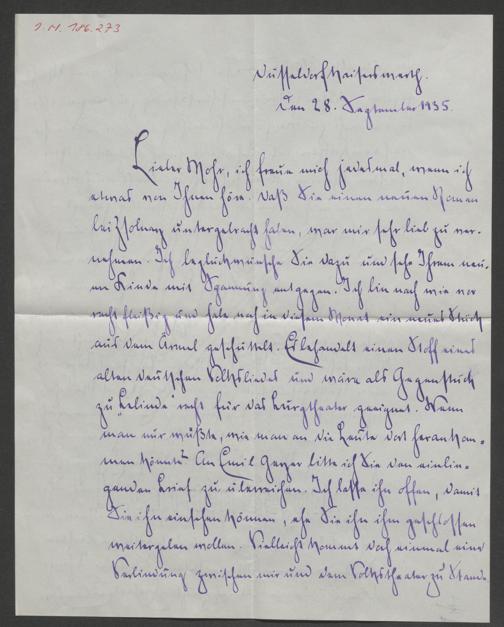 I.N. 186.273
Düsseldorf Kaiserswerth.
Den 28. September 1935.
Lieber Mohr, ich freue mich jedesmal, wenn ich
etwas von Ihnen höre. Daß Sie einen neuen Roman
bei Zsolnay untergebracht haben, war mir sehr lieb zu ver-
nehmen. Ich beglückwünsche Sie dazu und sehe Ihrem neu-
en Kinde mit Spannung entgegen. Ich bin nach wie vor
recht fleißig und habe noch in diesem Monat ein neues Stück
aus dem Ärmel geschüttelt. Es behandelt einen Stoff eines
alten deutschen Volksliedes und wäre als Gegenstück
zu "Gelinde" recht für das Burgtheater geeignet. Wenn
man nur wüßte, wie man an die Leute dort herankom-
men könnte! An Emil Geyer bitte ich Sie den einlie-
genden Brief zu überreichen. Ich lasse ihn offen, damit
Sie ihn einsehen können, ehe Sie ihn ihm geschlossen
weitergeben wollen. Vielleicht kommt doch einmal eine
Verbindung zwischen mir und dem Volkstheater zu Stande